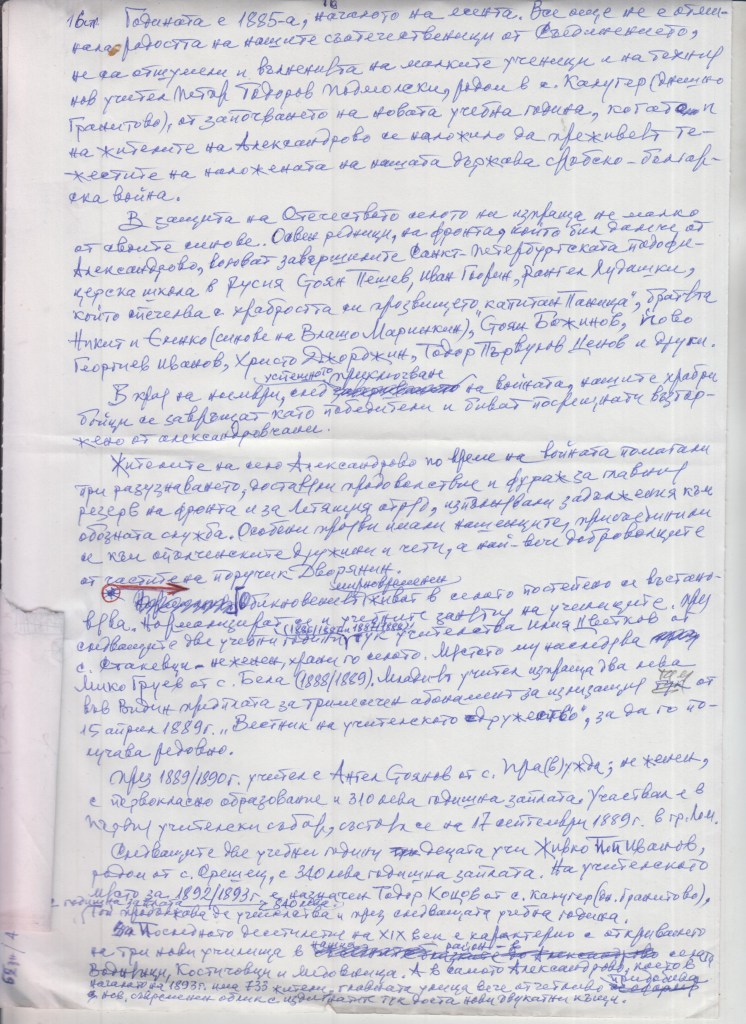 16 Годината е 1885-а, началото на есента. Все още не е отшу-
мяла радостта на нашите сънародници от Съединението,
не са отшумели и вълненията на малките ученици и на техния
нов учител Петър Тодоров Подмолски, родом в с. Калугер (днешно
Гранитово), от започването на новата учебна година, когато и
на жителите на Александрово се наложило да преживеят те-
жестите на наложената на нашата държава сръбско-българ-
ска война.
В защита на Отечеството селото ни изпраща не малко
от своите синове. Освен редници, на фронта, който бил далече от
Александрово, воюват завършилите Санкт-Петербургската подофи-
церска школа в Русия Стоян Пешев, Иван Гюрин, Рангел Лудашки,
който спечелва с храбростта си прозвището "капитан Паница", братята
Никит и Еленко (синове на Влашо Маринкин), Стоян Божинов, Йово
Георгиев Иванов, Христо Джорджин, Тодор Първулов Ценов и други.
успешното приключване
В края на ноември, след на войната, нашите храбри
бойци се завръщат като победители и биват посрещнати възтор-
жено от александровчани.
Жителите на село Александрово по време на войната помагали
при разузнаването, доставяли продоволствие и фураж за главния
резерв на фронта и за Летящия отряд, изпълнявали задълженията към
обозната служба. Особени прояви имали нашенците, присъединили
се към опълченските дружини и чети, а най-вече доброволците
от частите на поручик Дворянин.
мирновременен
Обикновеният живот в селото постепенно се възстано-
вява. Нормализират се и учебните занятия на учениците. През
(1886/1887 и 1887/1888)
следващите две учебни години тук учителства Илия Цветков от
с. Стакевци - неженен, храни го селото. Мястото му наследява
Милко Груев от с. Бела (1888/1889). Младият учител изпраща два лева
във Видин предплата за тримесечен абонамент за излизащия там от
15 април 1889г. "Вестник на учителското дружество", за да го по-
лучава редовно.
През 1889/1890г. учител е Ангел Стоянов от с. Пра(в)ужда; неженен,
с първокласно образование и 310 лева годишна заплата. Участвал е в
Първия учителски събор, състоял се на 17 септември 1889г. в гр. Лом.
Следващите две учебни години децата учи Живко Иванов,
родом от с. Орешец, с 340 лева годишна заплата. На учителското
място за 1892/1893г. е назначен Тодор Коцов от с. Калугер (дн. Гранитово),
с годишна заплата
Той продължава да учителства и през следващата учебна година.
Последното десетилетие на XIX век е характерно с откриването
нашия район - в
на три нови училища в селата
Водници, Костичовци и Медовница. А в самото Александрово, което в
началото на 1893г. има 733 жители, главната улица вече отчетливо придобива
нов, съвременен облик с издигнатите тук доста нови двукатни къщи.